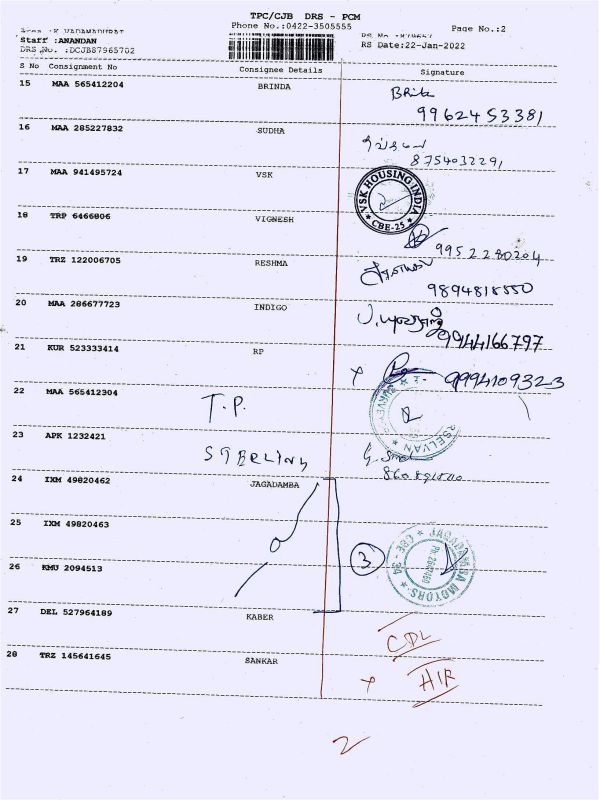 TPC/CJB DRS - PCM
Phone No.:0422-3505555
Page No.:2
Staff :ANANDAN
DRS No. :DCJB87965702
RS Date:22-Jan-2022
S No Consignment No Consignee Details Signature
15 MAA 565412204 BRINDA
9962453381
16 MAA 285227832 SUDHA
8754032291
17 MAA 941495724 VSK
VSK HOUSING INDIA
CBE-25
18 TRP 6466806 VIGNESH
9952280204
19 TRZ 122006705 RESHMA
9894818550
20 MAA 286677723 INDIGO
9944166797
21 KUR 523333414 RP
9994109323
22 MAA 565412304 T.P.
23 APK 1232421
24 IXM 49820462 JAGADAMBA
25 IXM 49820463
3
JAGADAMBA MOTORS
CBE - 24
26 KMU 2094513
27 DEL 527964189 KABER
CDL
28 TRZ 145641645 SANKAR
HIR
2